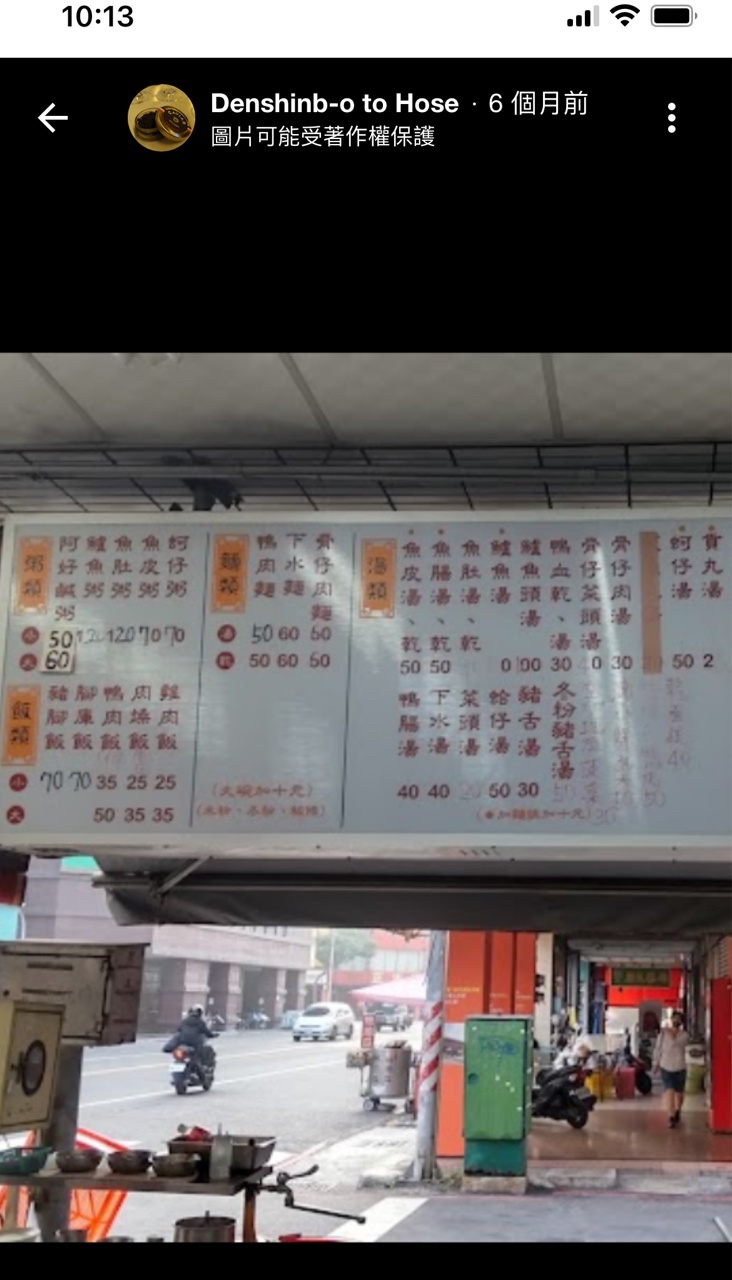 10:13
Denshinb-o to Hose · 6 個月前
圖片可能受著作權保護
粥類
阿好鹹粥
鱸魚粥
魚肚粥
魚皮粥
蚵仔粥
小 50 120 120 70 70
大 60
飯類
豬腳飯
腳庫飯
鴨肉飯
肉燥飯
雞肉飯
小 70 70 35 25 25
大 50 35 35
麵類
鴨肉麵
下水麵
骨仔肉麵
湯 50 60 60
乾 50 60 50
(大碗加十元)
湯類
魚皮湯、乾
魚腸湯、乾
魚肚湯、乾
鱸魚湯
鱸魚頭湯
鴨血乾、湯
骨仔菜頭湯
骨仔肉湯
蚵仔湯
貢丸湯
50 50 30 30 50
鴨腸湯
下水湯
菜頭湯
蛤仔湯
豬舌湯
冬粉豬舌湯
40 40 50 30